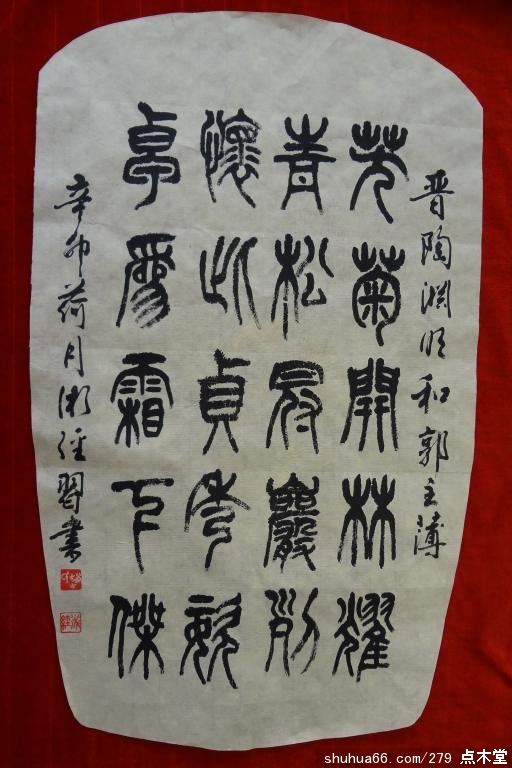 晋陶渊明和郭主薄
芳菊開林耀
青松冠巖列
懷此貞秀姿
卓爲霜下傑
辛卯荷月習書
shuhua66.com/279 点木堂